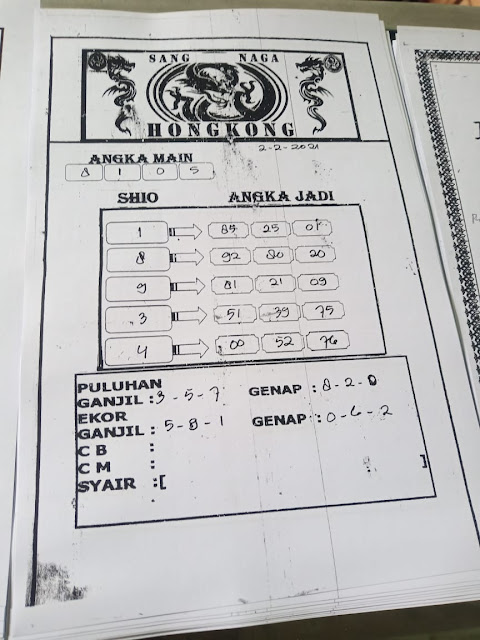 SANG NAGA
HONGKONG
2-2-2021
ANGKA MAIN
8 1 0 5
SHIO ANGKA JADI
1 85 25 01
8 92 80 20
9 81 21 09
3 51 39 75
4 00 52 76
PULUHAN
GANJIL : 3 - 5 - 7 GENAP : 8 - 2 - 0
EKOR
GANJIL : 5 - 9 - 1 GENAP : 0 - 6 - 2
C B :
C M :
SYAIR :[ ]